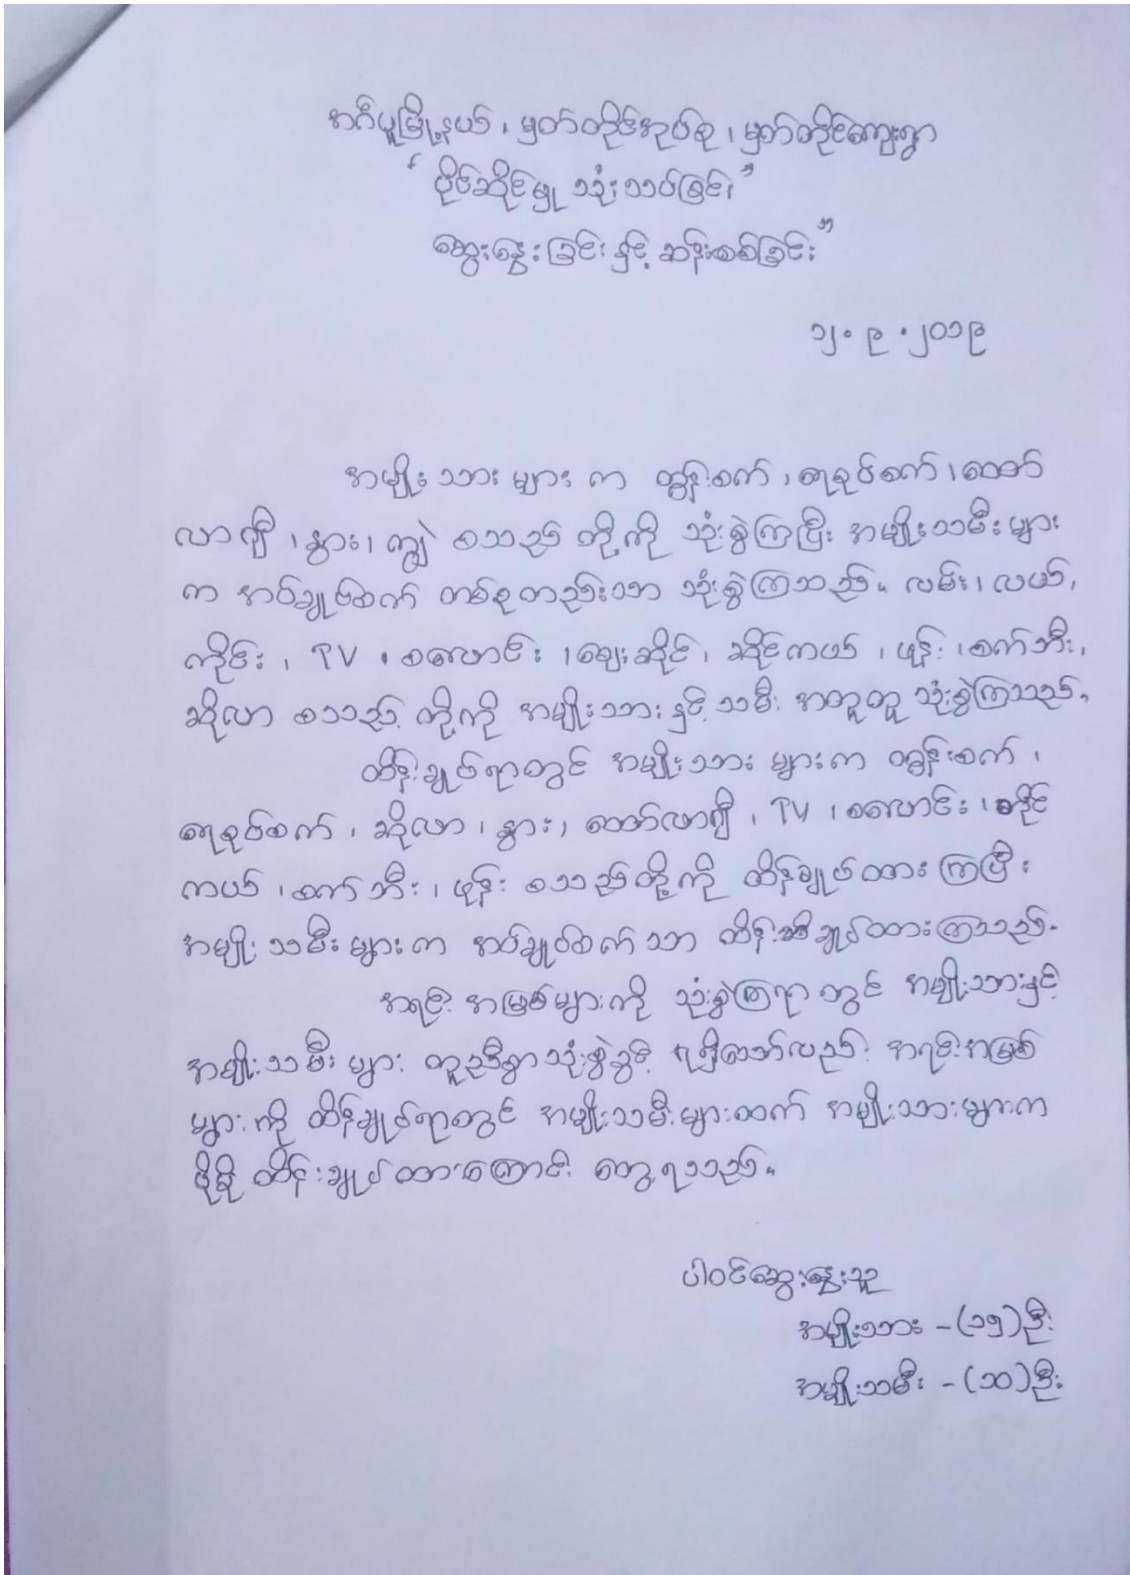 အင်္ဂပူမြို့နယ်၊ မှတ်တိုင်အုပ်စု၊ မှတ်တိုင်ကျေးရွာ
“ ပိုင်ဆိုင်မှု သုံးသပ်ခြင်း ”
ဆွေးနွေးခြင်း နှင့် ဆန်းစစ်ခြင်း ”
၁၂.၉.၂၀၁၉
အမျိုးသားများ က ထွန်စက်၊ ရေစုပ်စက်၊ ထော်
လာဂျီ၊ နွား၊ ကျွဲ စသည် တို့ကို သုံးစွဲကြပြီး အမျိုးသမီးများ
က အပ်ချုပ်စက် တစ်ခုတည်းသာ သုံးစွဲကြသည်။ လမ်း၊ လယ်၊
ကိုင်း၊ TV ၊ စလောင်း၊ ဈေးဆိုင်၊ ဆိုင်ကယ်၊ ဖုန်း၊ စက်ဘီး၊
ဆိုလာ စသည့် တို့ကို အမျိုးသား နှင့် သမီး အတူတူ သုံးစွဲကြသည်။
ထိန်းချုပ်ရာတွင် အမျိုးသား များက ထွန်စက်၊
ရေစုပ်စက်၊ ဆိုလာ၊ နွား၊ ထော်လာဂျီ၊ TV ၊ စလောင်း၊ ဆိုင်
ကယ်၊ စက်ဘီး၊ ဖုန်း စသည်တို့ကို ထိန်းချုပ်ထားကြပြီး
အမျိုးသမီးများက အပ်ချုပ်စက်သာ ထိန်းချုပ်ထားကြသည်။
အရင်းအမြစ်များကို သုံးစွဲကြရာတွင် အမျိုးသားနှင့်
အမျိုးသမီးများ တူညီစွာသုံးစွဲခွင့် ရရှိသော်လည်း အရင်းအမြစ်
များကို ထိန်းချုပ်ရာတွင် အမျိုးသမီးများထက် အမျိုးသားများက
ပိုမို ထိန်းချုပ်ထားကြောင်း တွေ့ရသည်။
ပါဝင်ဆွေးနွေးသူ
အမျိုးသား -(၁၅)ဦး
အမျိုးသမီး -(၁၀)ဦး